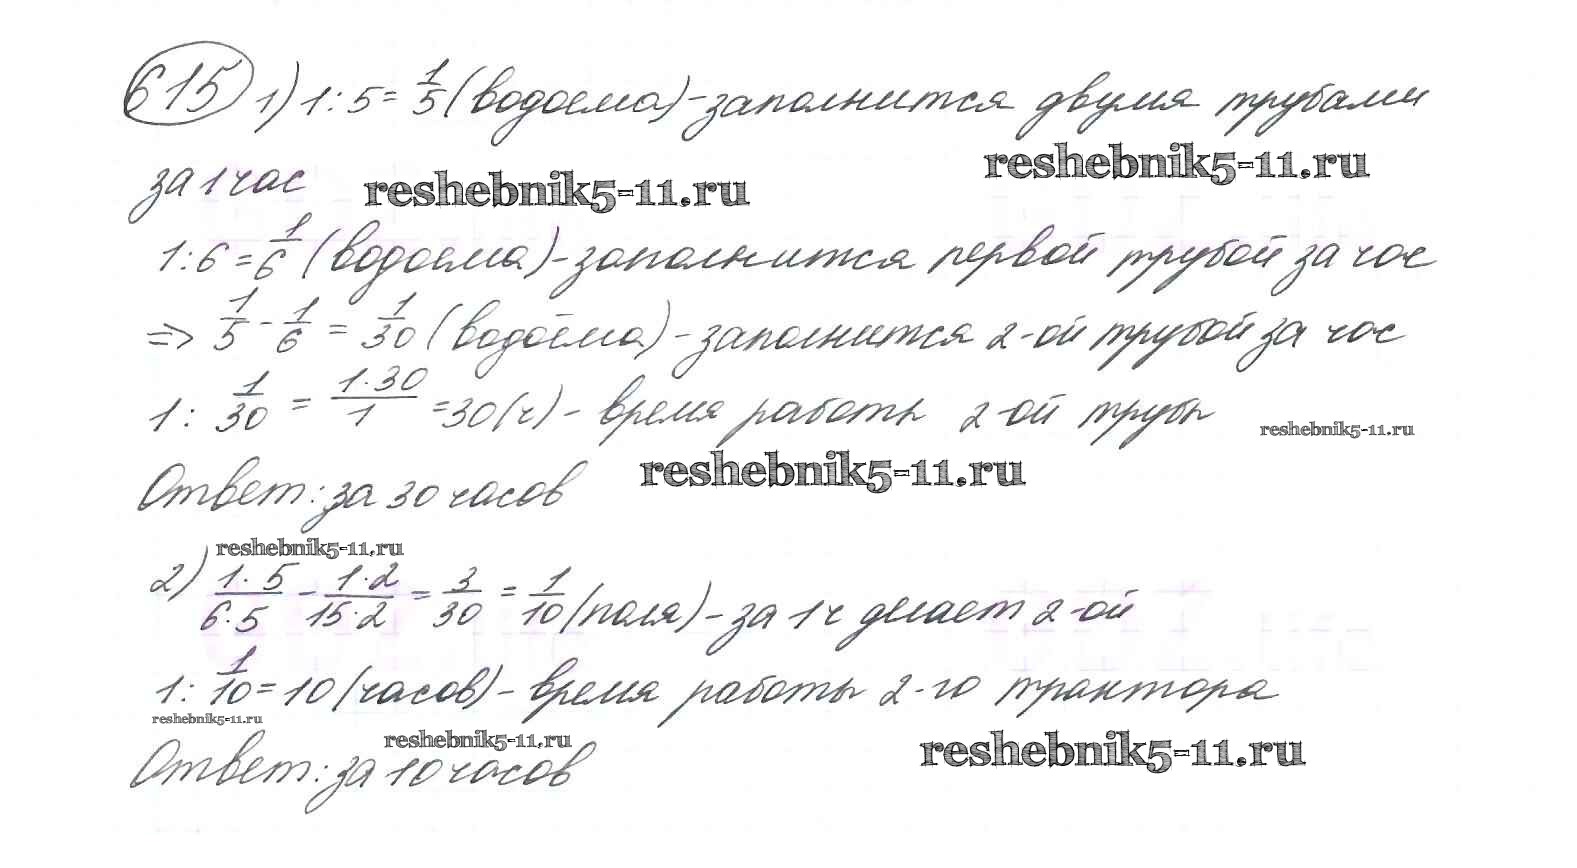 615 1) 1 : 5 = 1/5 (водоема) - заполнится двумя трубами
reshebnik5-11.ru
за 1 час
reshebnik5-11.ru
1 : 6 = 1/6 (водоема) - заполнится первой трубой за час
=> 1/5 - 1/6 = 1/30 (водоёма) - заполнится 2-ой трубой за час
1 : 1/30 = 1·30/1 = 30 (ч) - время работы 2-ой трубы
reshebnik5-11.ru
reshebnik5-11.ru
Ответ: за 30 часов
reshebnik5-11.ru
2) 1·5/6·5 - 1·2/15·2 = 3/30 = 1/10 (поля) - за 1 ч делает 2-ой
1 : 1/10 = 10 (часов) - время работы 2-го трактора
reshebnik5-11.ru
reshebnik5-11.ru
reshebnik5-11.ru
Ответ: за 10 часов